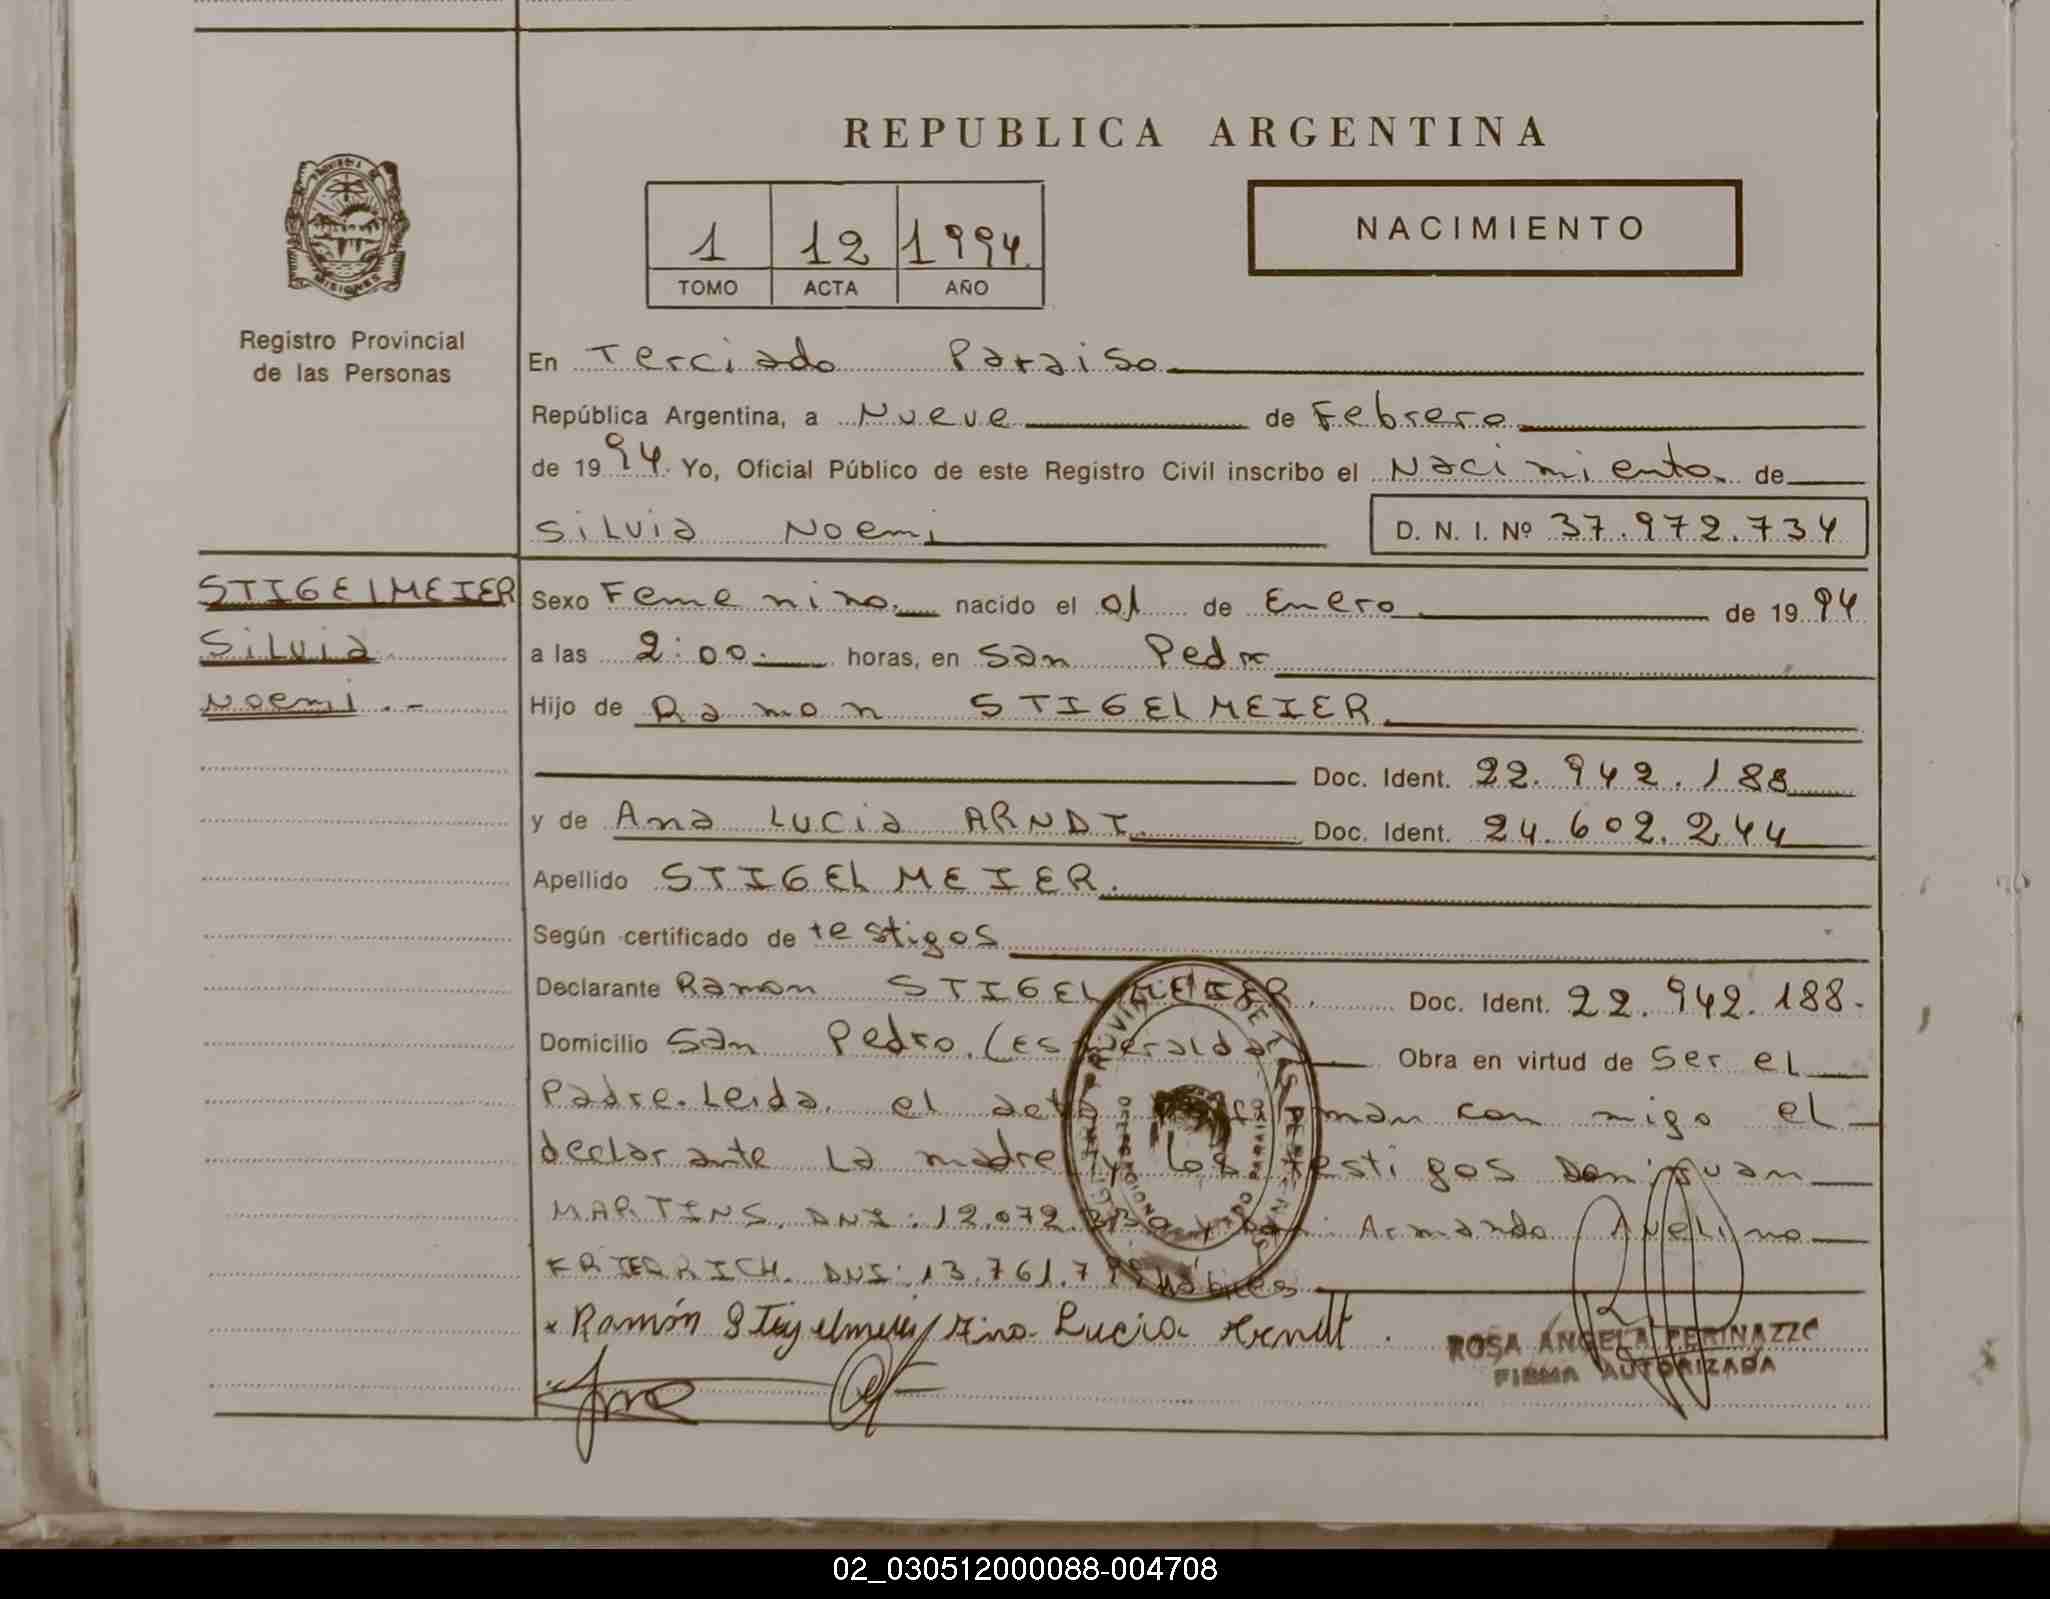 REPUBLICA ARGENTINA
1 12 1994
TOMO ACTA AÑO
NACIMIENTO
MISIONES
Registro Provincial
de las Personas
En Terciado Paraiso
República Argentina, a Nueve de Febrero
de 1994. Yo, Oficial Público de este Registro Civil inscribo el Nacimiento de
Silvia Noemi D. N. I. Nº 37.972.734
STIGELMEIER
Silvia
Noemi.-
Sexo Femenino. nacido el 01 de Enero de 1994
a las 2:00. horas, en San Pedro
Hijo de Ramon STIGELMEIER
Doc. Ident. 22.942.188
y de Ana Lucia ARNDT Doc. Ident. 24.602.244
Apellido STIGELMEIER.
Según certificado de testigos
Declarante Ramon STIGELMEIER. Doc. Ident. 22.942.188.
Domicilio San Pedro. (Esmeralda) Obra en virtud de Ser el
Padre. Leida el acta firman con migo el
declarante La madre y los testigos Don: Juan
MARTINS. DNI: 12.072. Don: Armando Avelino
FRIEDRICH. DNI: 13.761.7 hábiles
* Ramón Stigelmeier / Ana Lucia Arndt.
ROSA ANGELA PERINAZZO
FIRMA AUTORIZADA
02_030512000088-004708